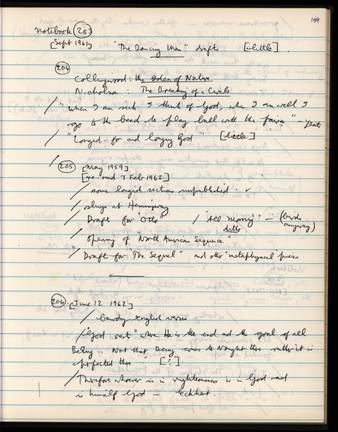 199
Notebook (203)
[Sept 1961] "The Dancing Man" drafts [little]
(204)
Collingwood: The Idea of Nature
Nicholson: The Breaking of a Circle
/ "when I am sick I think of God, when I am well I
go to the
to play ball with the
" — Yeats
/ "Longed-for and longing God" [little]
(205) [May 1959]
[re-read 7 Feb 1962]
/ some longer sections unpublished - v
/ slings at Hemingway
/ Draft for Otto / "All Morning" - (birds
ditto
/ Opening of North American Sequence
/ Draft for "The Sequel" and other "metaphysical" pieces
(206) [June 12 1962]
/ bawdy English verses
/ "God
" where He is the end and the goal of all
Being. Not that Being
to nought there rather it is
perfected there - [!]
/ Therefore whoever is in righteousness is in God and
is himself God - Eckhart.